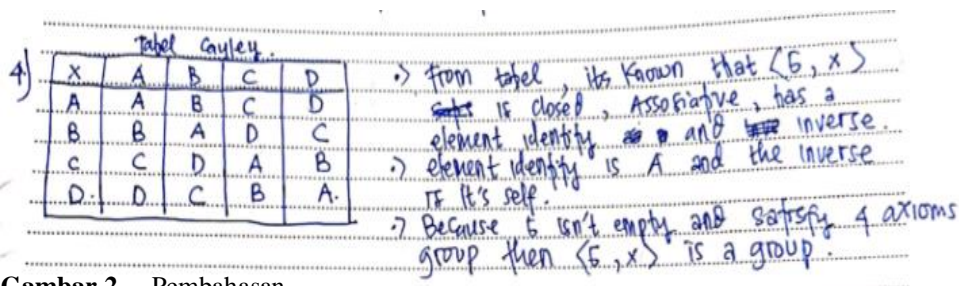 Tabel Cayley.
4)
X A B C D
A A B C D
B B A D C
C C D A B
D. D C B A.
·) from tabel, its known that <G, x>
is closed, Assosiative, has a
element identity and inverse.
·) element identity is A and the inverse
is It's self.
·) Because G isn't empty and satisfy 4 axioms
group then <G, x> is a group.
Gambar 2. Pembahasan